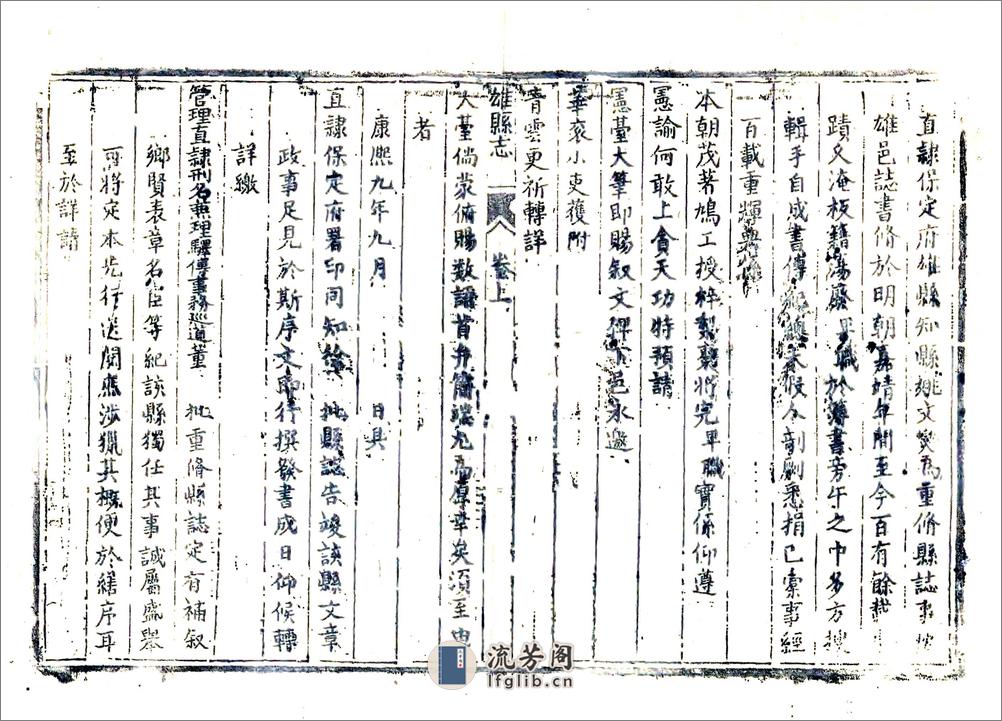 直隸保定府雄縣知縣姚文燮為重脩縣誌事
雄邑誌書脩於明朝嘉靖年間至今百有餘載
蹟久淹板籍湯廢卑職於簿書旁午之中多方搜
輯手自成書傳假人剞劂悉捐己橐事經
百載重輝典
本朝茂著鳩工授梓剞劂將完卑職實係仰遵
憲諭何敢上貪天功特預請
憲臺大筆即賜叙文俾下邑永邀
華衮小吏獲附
青雲更祈轉詳
雄縣志 卷上
大臺倘蒙俯賜數語首弁簡端尤為厚幸矣須至申
者
康熙九年九月 日具
直隸保定府署印同知徐 批縣誌告竣該縣文章
政事足見於斯序文即行撰發書成日仰候轉
詳繳
管理直隸刑名兼理驛傳事務巡道董 批重脩縣誌定有補叙
鄉賢表章名宦等紀該縣獨任其事誠屬盛舉
可將定本先行送閱應涉獵其概便於繕序耳
至於詳請
流芳阁
lfglib.cn